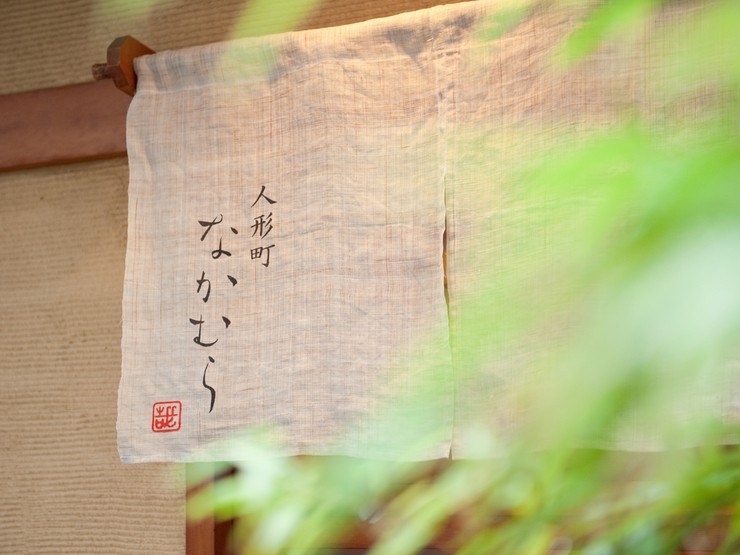 人形町
なかむら